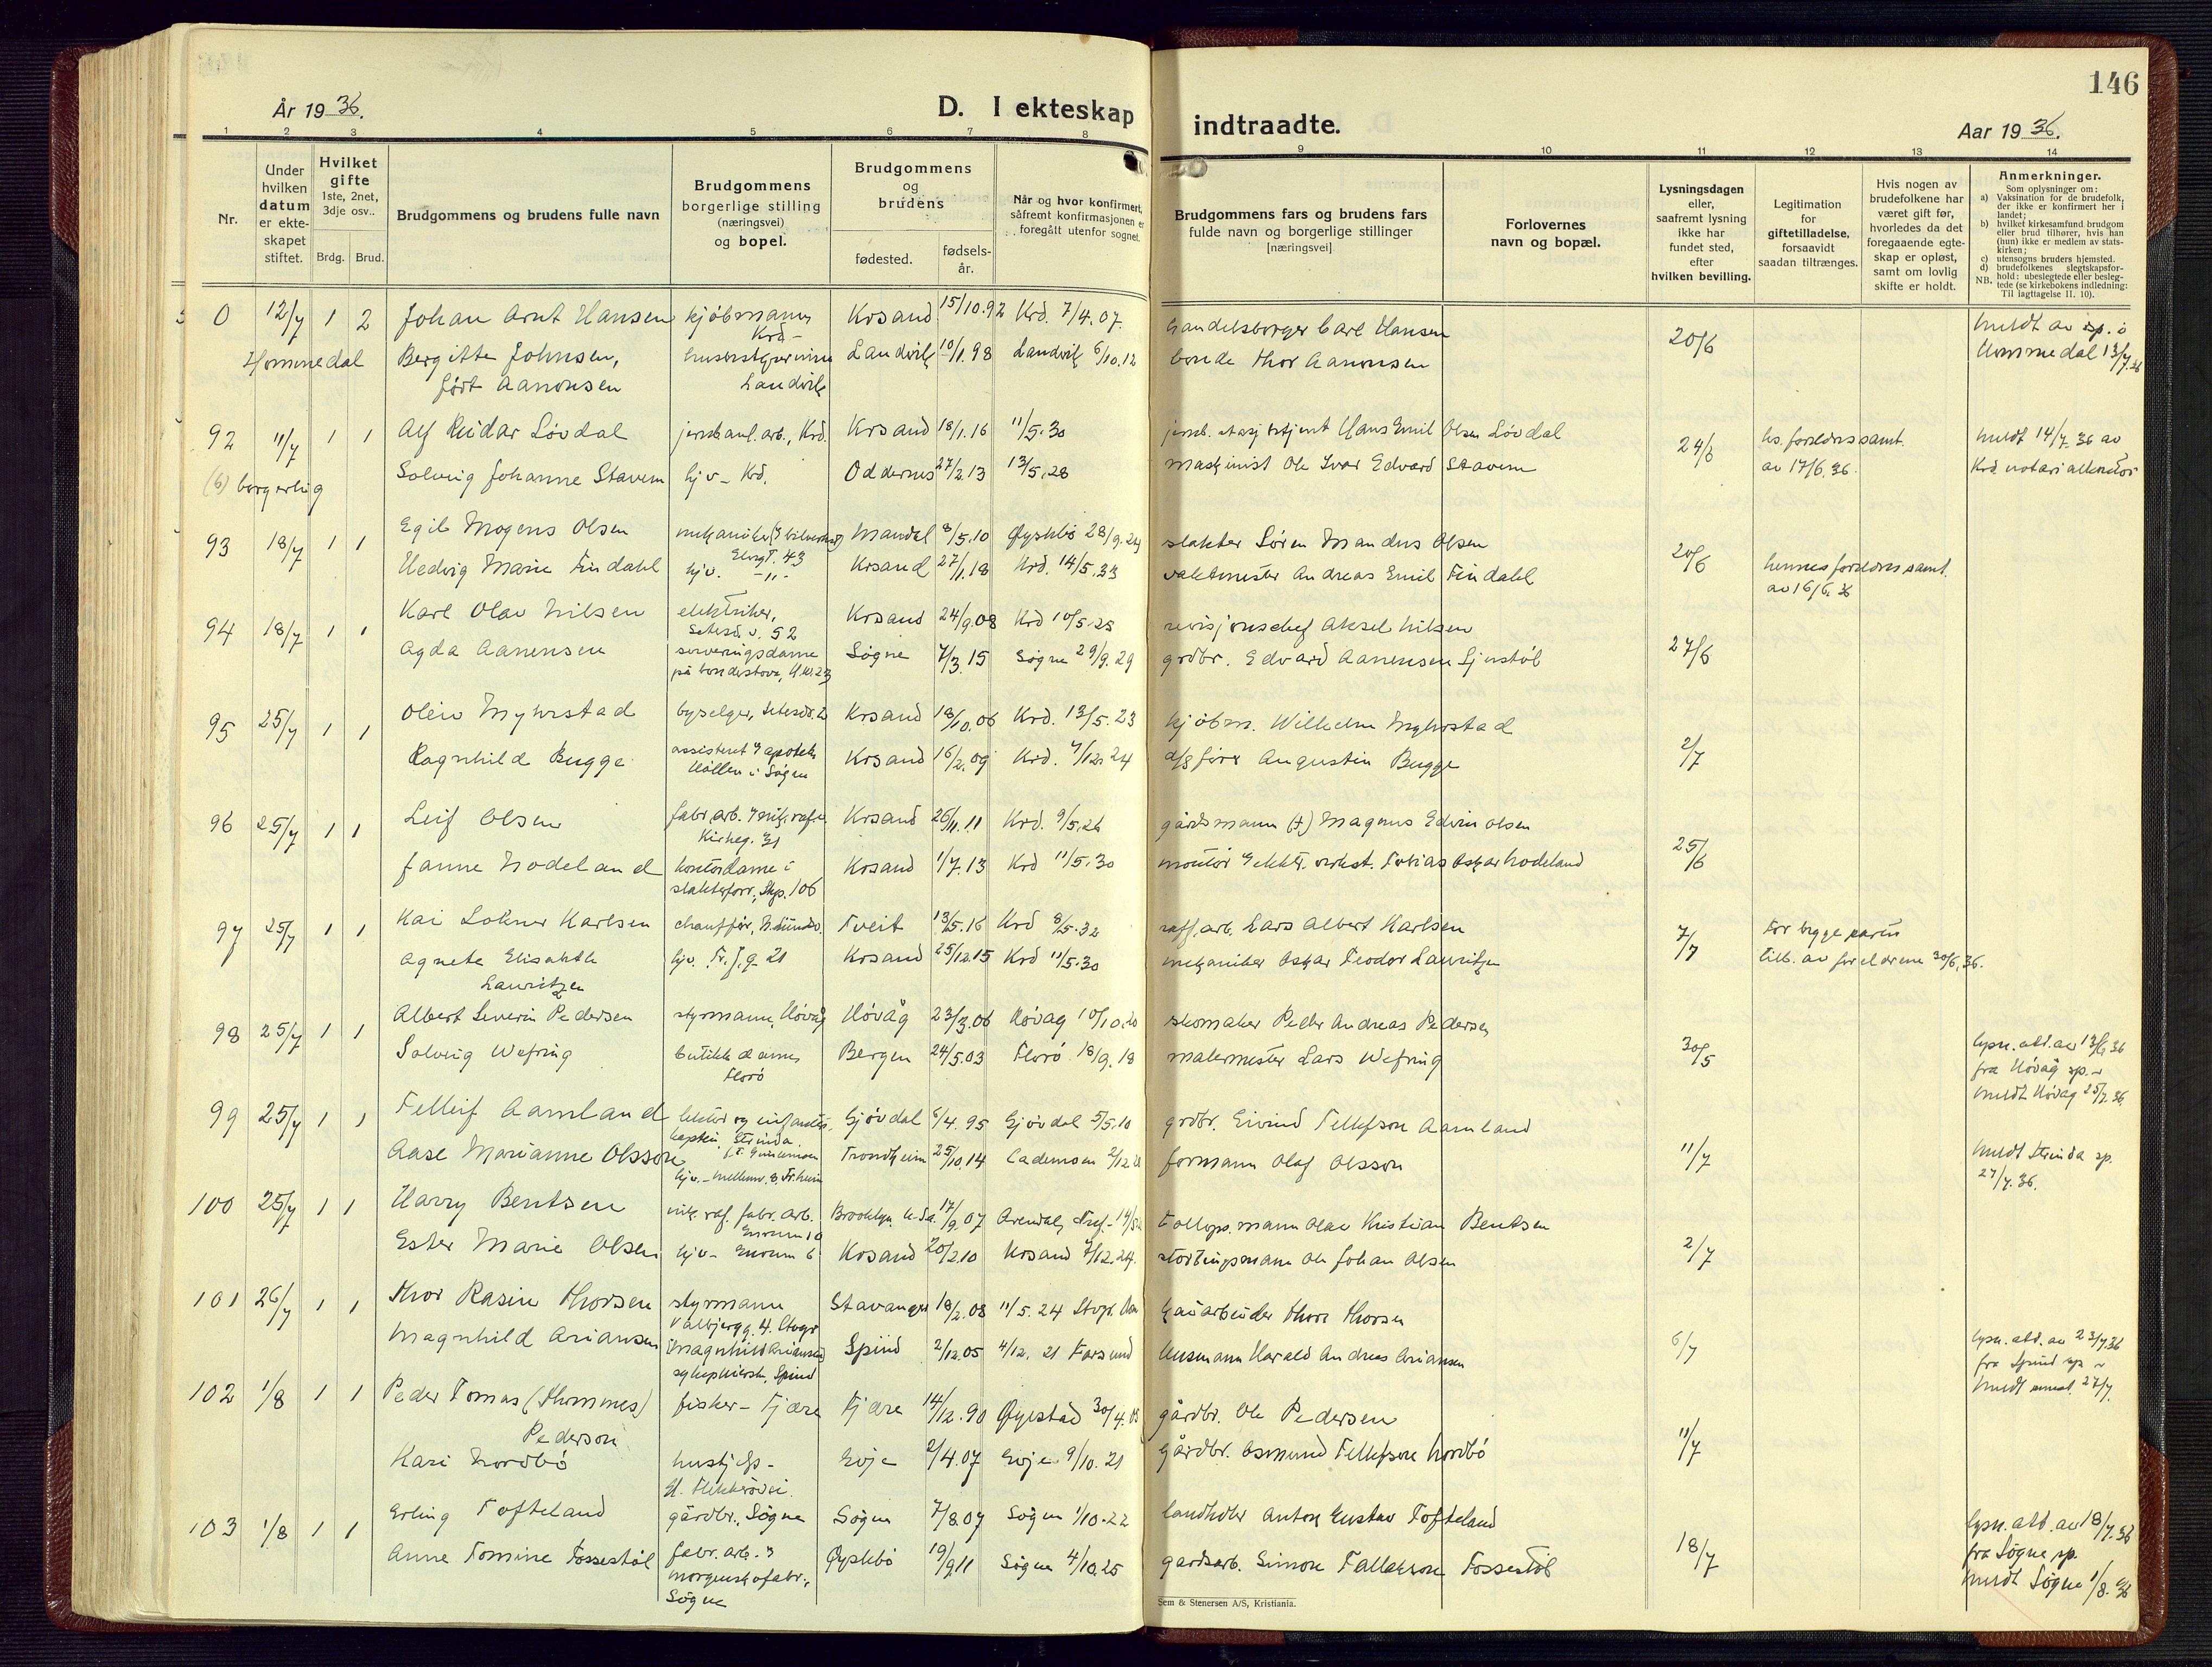 146
År 1936.
D. I ekteskap
indtraadte.
Aar 1936.
1 2 3 4 5 6 7 8 9 10 11 12 13 14
Nr.
Under hvilken datum er ekte-skapet stiftet.
Hvilket gifte 1ste, 2net, 3dje osv..
Brdg. Brud.
Brudgommens og brudens fulle navn
Brudgommens borgerlige stilling (næringsvei) og bopel.
Brudgommens og brudens
fødested.
fødsels-år.
Når og hvor konfirmert, såfremt konfirmasjonen er foregått utenfor sognet.
Brudgommens fars og brudens fars fulde navn og borgerlige stillinger [næringsvei]
Forlovernes navn og bopæl.
Lysningsdagen eller, saafremt lysning ikke har fundet sted, efter hvilken bevilling.
Legitimation for giftetilladelse, forsaavidt saadan tiltrænges.
Hvis nogen av brudefolkene har været gift før, hvorledes da det foregaaende egte-skap er opløst, samt om lovlig skifte er holdt.
Anmerkninger.
Som oplysninger om:
a) Vaksination for de brudefolk, der ikke er konfirmert her i landet;
b) hvilket kirkesamfund brudgom eller brud tilhører, hvis han (hun) ikke er medlem av stats-kirken;
c) utensogns bruders hjemsted.
d) brudefolkenes slegtskapsfor-hold: ubeslegtede eller besleg-tede (se kirkebokens indledning: Til iagttagelse II. 10).
NB.
0 12/7 1 2 Johan Arnt Hansen kjøbmann Krd- Krsand 15/10.92 Krd. 7/4.07. handelsborger Carl Hansen 20/6 meldt av sp. i
Hommedal Bergitte Johnsen, født Aanonsen husbestyrerinne Landvik Landvik 10/1.98 Landvik 6/10.12 bonde Thor Aanonsen Hommedal 13/7.36
92 11/7 1 1 Alf Reidar Løvdal jernb.anl.arb., Krd. Krsand 18/1.16 11/5.30 Hans Emil Olsen Løvdal 24/6 hs. foreldres samt. meldt 14/7.36 av
(6) borgerlig Solveig Johanne Stavem hjv- Krd. Oddernes 27/2.13 13/5.28 maskinist Ole Ivar Edvard Stavem av 17/6.36. Krd. notarialkontor
93 18/7 1 1 Egil Mogens Olsen mekaniker Elvegt. 43 Mandal 8/5.10 Øyslebø 28/9.24 slakter Søren Mandus Olsen 20/6
Hedvig Marie Findahl hjv. -"- Krsand 27/1.18 Krd. 14/5.33 vaktmester Andreas Emil Findahl hennes foreldres samt. av 16/6.36
94 18/7 1 1 Karl Olav Nilsen elektriker, Setesd.v. 52 Krsand 24/9.08 Krd 10/5.25 revisjonschef Aksel Nilsen 27/6
Agda Aanensen serveringsdame på bondestova, Søgne 7/3.15 Søgne 29/9.29 grdbr. Edvard Aanensen
95 25/7 1 1 Olein Myhrstad byselger, Krsand 18/10.06 Krd. 13/5.23 kjøbm. Wilhelm Myhrstad 2/7
Ragnhild Bugge assistent apotek Høllen i Søgne Krsand 16/2.09 Krd. 7/12.24 Augustin Bugge
96 25/7 1 1 Leif Olsen fabr.arb. Kirkeg. 31 Krsand 26/11.11 Krd. 9/5.26 gårdsmann (+) Magnus Edvin Olsen 25/6
Janne Nodeland kontordame i slakterforr., Skp. 106 Krsand 1/7.13 Krd 11/5.30 montør Tobias Oskar Nodeland
97 25/7 1 1 Kai Lohner Karlsen chauffør, Tveit 13/5.16 Krd 8/5.32 raff.arb. Lars Albert Karlsen 7/7 For begge parter
Agnete Elisabeth Lauritzen hjv. 21 Krsand 25/12.15 Krd 11/5.30 mekaniker Oskar Teodor Lauritzen till. av foreldrene 30/6.36.
98 25/7 1 1 Albert Severin Pedersen styrmann, Høvåg Høvåg 23/3.06 Høvåg 10/10.20 skomaker Peder Andreas Pedersen 30/5 lysn.att. av 13/6.36
Solveig Wefring butikkdame Florø Bergen 24/5.03 Florø 18/9.18 malermester Lars Wefring fra Høvåg sp. -
meldt Høvåg 25/7.36
99 25/7 1 1 Telleif Aamland lektor og kaptein, Strinda Gjøvdal 6/4.95 Gjøvdal 5/5.10 grdbr. Eivind Tellefsen Aamland 11/7
Aase Marianne Olsson hjv. Tr.heim Trondheim 25/10.14 formann Olaf Olsson meldt Strinda sp. 27/7.36.
100 25/7 1 1 Harry Bentsen fabr.arb. Brooklyn U.S.A. 17/9.07 Arendal, Olav Kristian Bentsen 2/7
Ester Marie Olsen hjv- Krsand 20/2.10 Krsand 7/12.24. stortingsmann Ole Johan Olsen
101 26/7 1 1 Thor Rasin Thorsen styrmann Valbjergg. 4. Stvgr Stavanger 18/2.08 11/5.24 Stvgr. havarbeider Thore Thorsen 6/7
Magnhild Ariansen Spind Spind 2/12.05 4/12.21 Farsund husmann Harald Andreas Ariansen lysn.att. av 23/7.36
fra Spind sp -
meldt 27/7.
102 1/8 1 1 Peder Tomas (Thommes) Pedersen fisker- Fjære Fjære 14/12.90 Øyestad 30/4.05 gårdbr. Ole Pedersen 11/7
Kari Nordbø hushjelp- Evje 2/4.07 Evje 9/10.21 gårdbr. Osmund Tellefsen Nordbø
103 1/8 1 1 Erling Tofteland gårdbr., Søgne Søgne 7/8.07 Søgne 1/10.22 landhdlr Anton Gustav Tofteland 18/7 lysn.att. av 18/7.36
Anne Tomine Fossestøl fabr.arb. morgenskofabr., Søgne Øyslebø 19/9.11 Søgne 4/10.25 gardsarb. Simon Tallaksen Fossestøl fra Søgne sp.
meldt Søgne 1/8.36
Sem & Stenersen A/S, Kristiania.